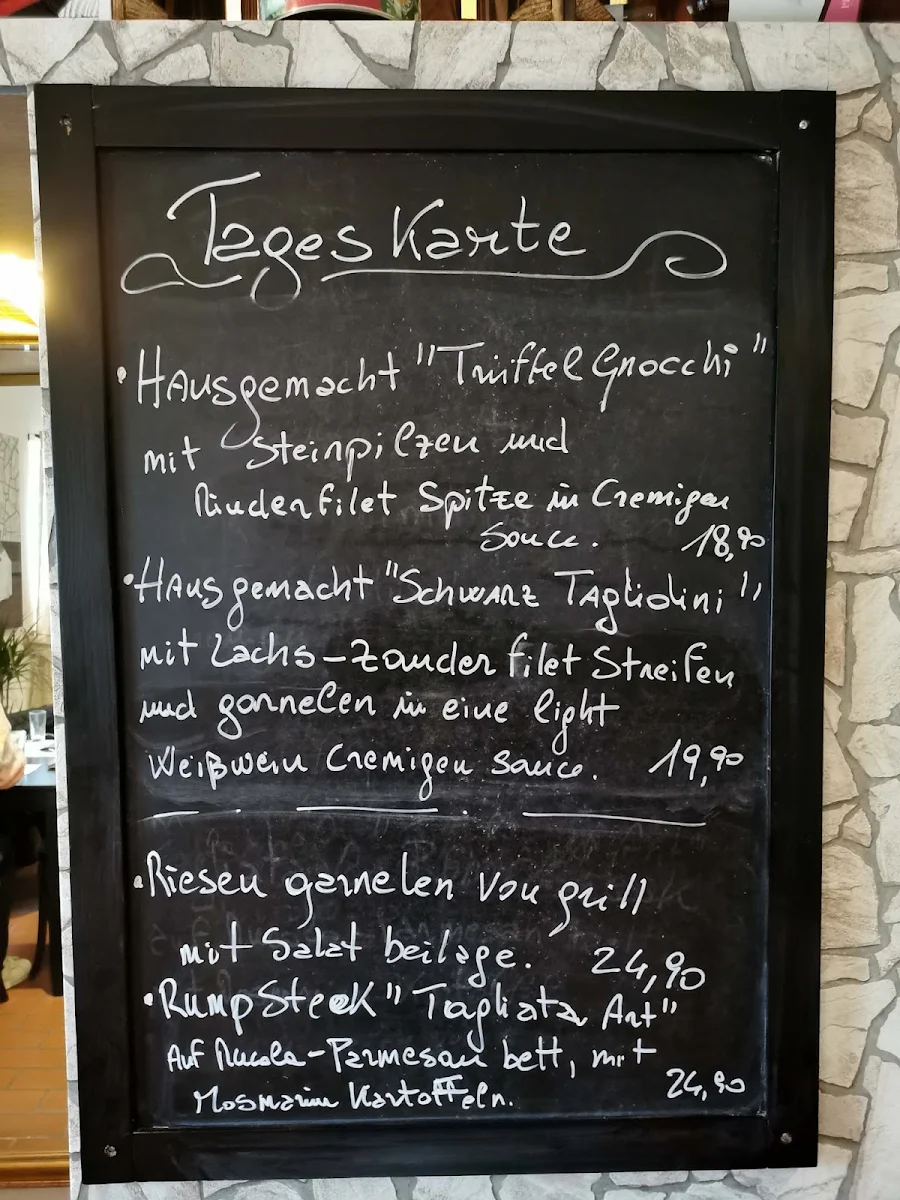 Tages Karte
• Hausgemacht "Trüffel Gnocchi"
mit Steinpilzen und
Rinderfilet Spitze in Cremigen
Souce. 18,90
• Hausgemacht "Schwarz Tagliolini"
mit Lachs-Zander filet Streifen
und garnelen in eine light
Weißwein Cremigen sauce. 19,90
• Riesen garnelen von grill
mit Salat beilage. 24,90
• Rump Steak "Tagliata Art"
Auf Rucola-Parmesan bett, mit
Rosmarin Kartoffeln. 24,90